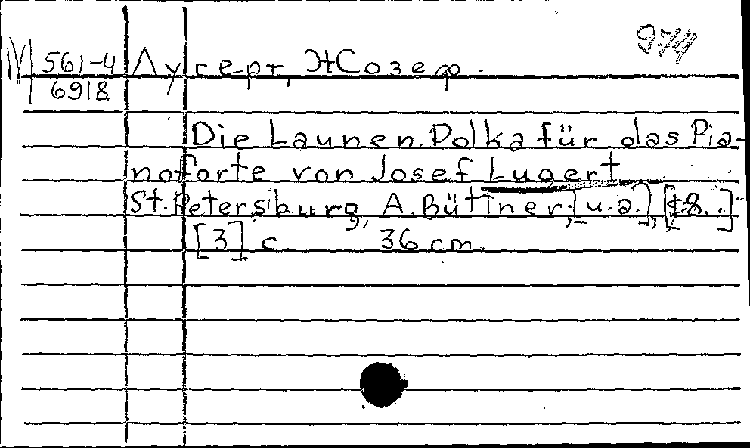 974
М 561-4
6918
Лугерт, Жозеф.
Die Launen. Polka für das Pia-
noforte von Josef Lugert
St. Petersburg, A. Büttner; [u.a.], [18..]
[3] с. 36 cm.